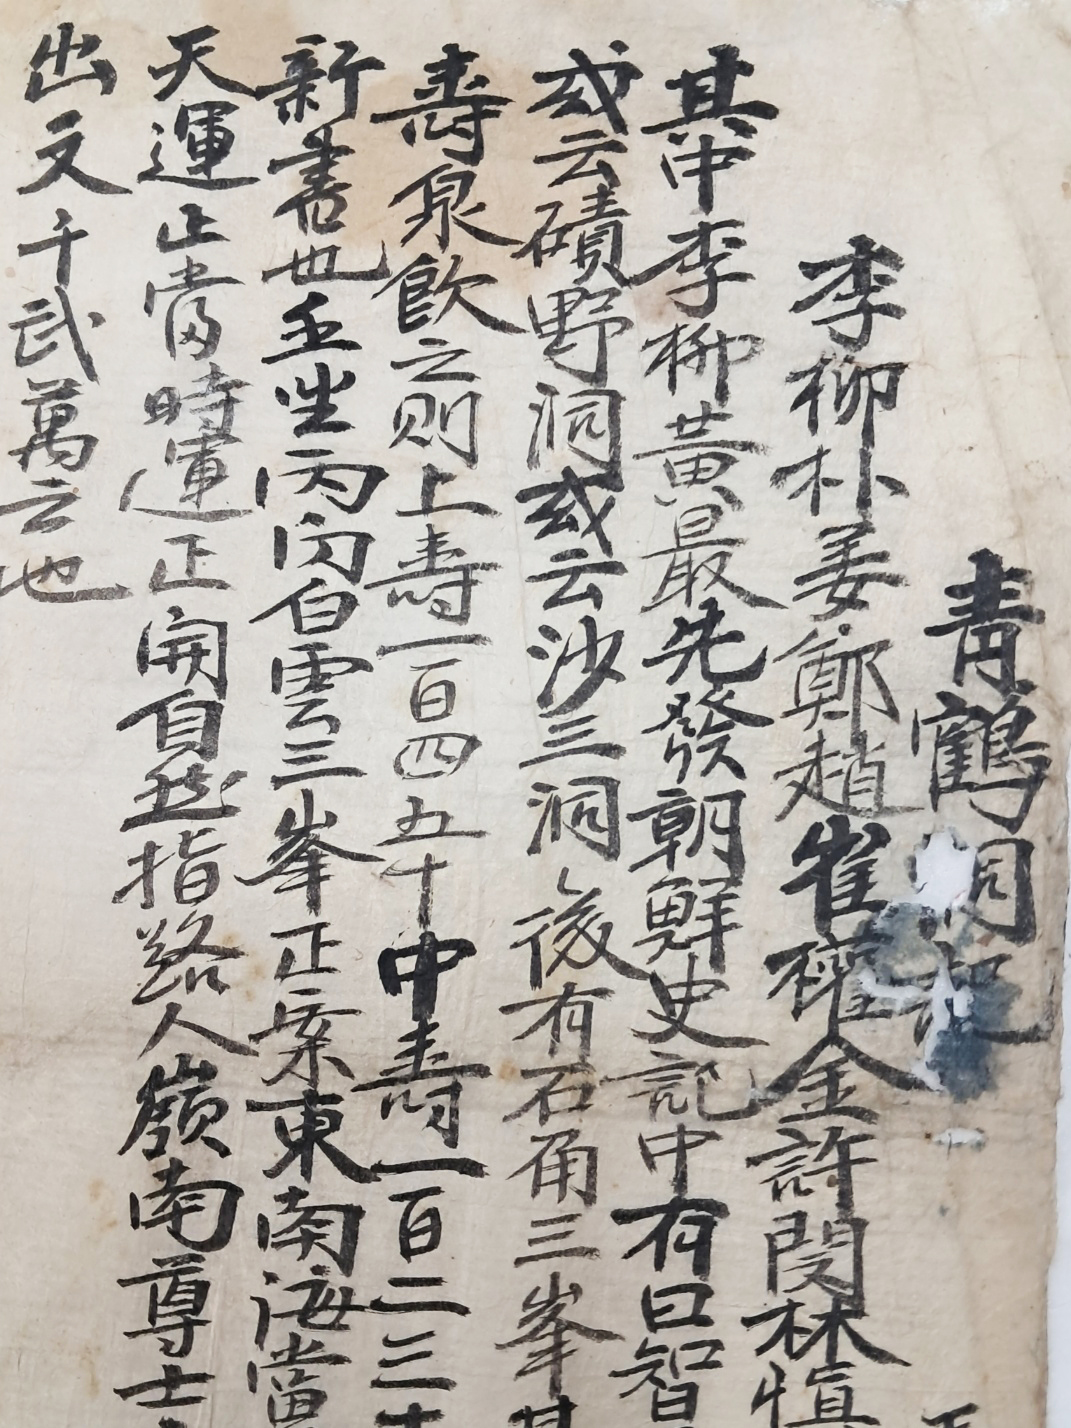 青鶴洞記
李柳朴姜鄭趙崔權金許閔林愼
其中李柳黃最先發朝鮮史記中有曰智
或云磧野洞或云沙三洞後有石角三峯其
壽泉飮之則上壽一百四五十中壽一百二三十
新書也壬坐丙向白雲三峯正案東南海當
天運止當時運正開自然指路人嶺南尊士
出文千武萬云地